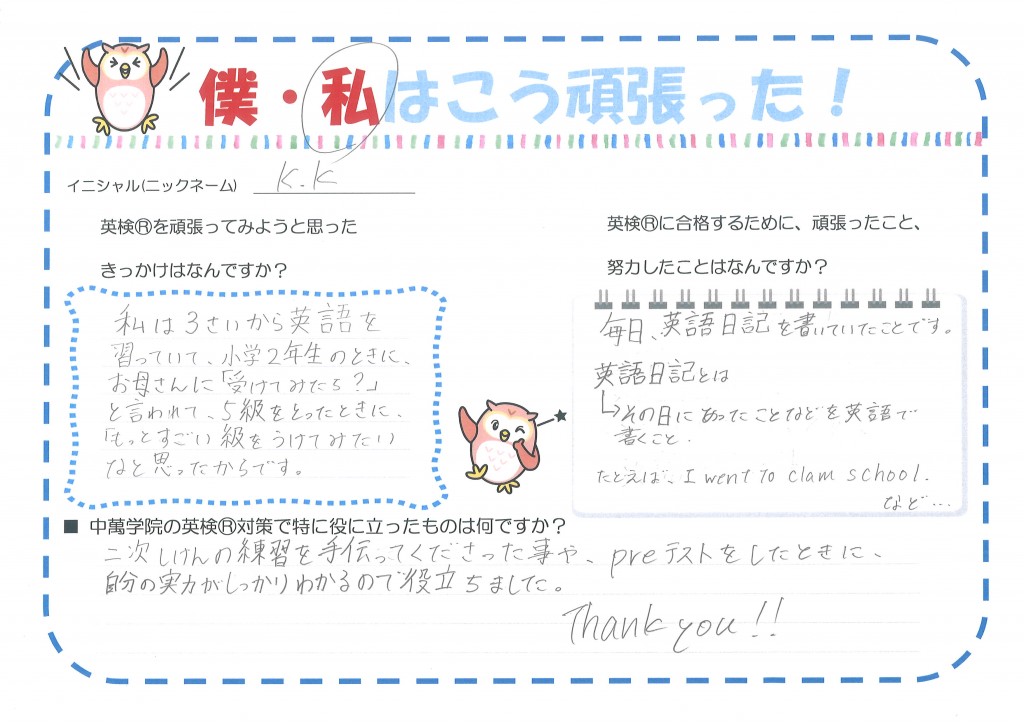 僕・私はこう頑張った！
イニシャル(ニックネーム) K.K
英検Ⓡを頑張ってみようと思った
きっかけはなんですか？
私は3さいから英語を
習っていて、小学2年生のときに、
お母さんに「受けてみたら？」
と言われて、5級をとったときに、
「もっとすごい級をうけてみたい
なと思ったからです。
英検Ⓡに合格するために、頑張ったこと、
努力したことはなんですか？
毎日、英語日記を書いていたことです。
英語日記とは
↳その日にあったことなどを英語で
書くこと.
たとえば、I went to clam school.
など…
■ 中萬学院の英検Ⓡ対策で特に役に立ったものは何ですか？
二次しけんの練習を手伝ってくださった事や、preテストをしたときに、
自分の実力がしっかりわかるので役立ちました。
Thank you!!